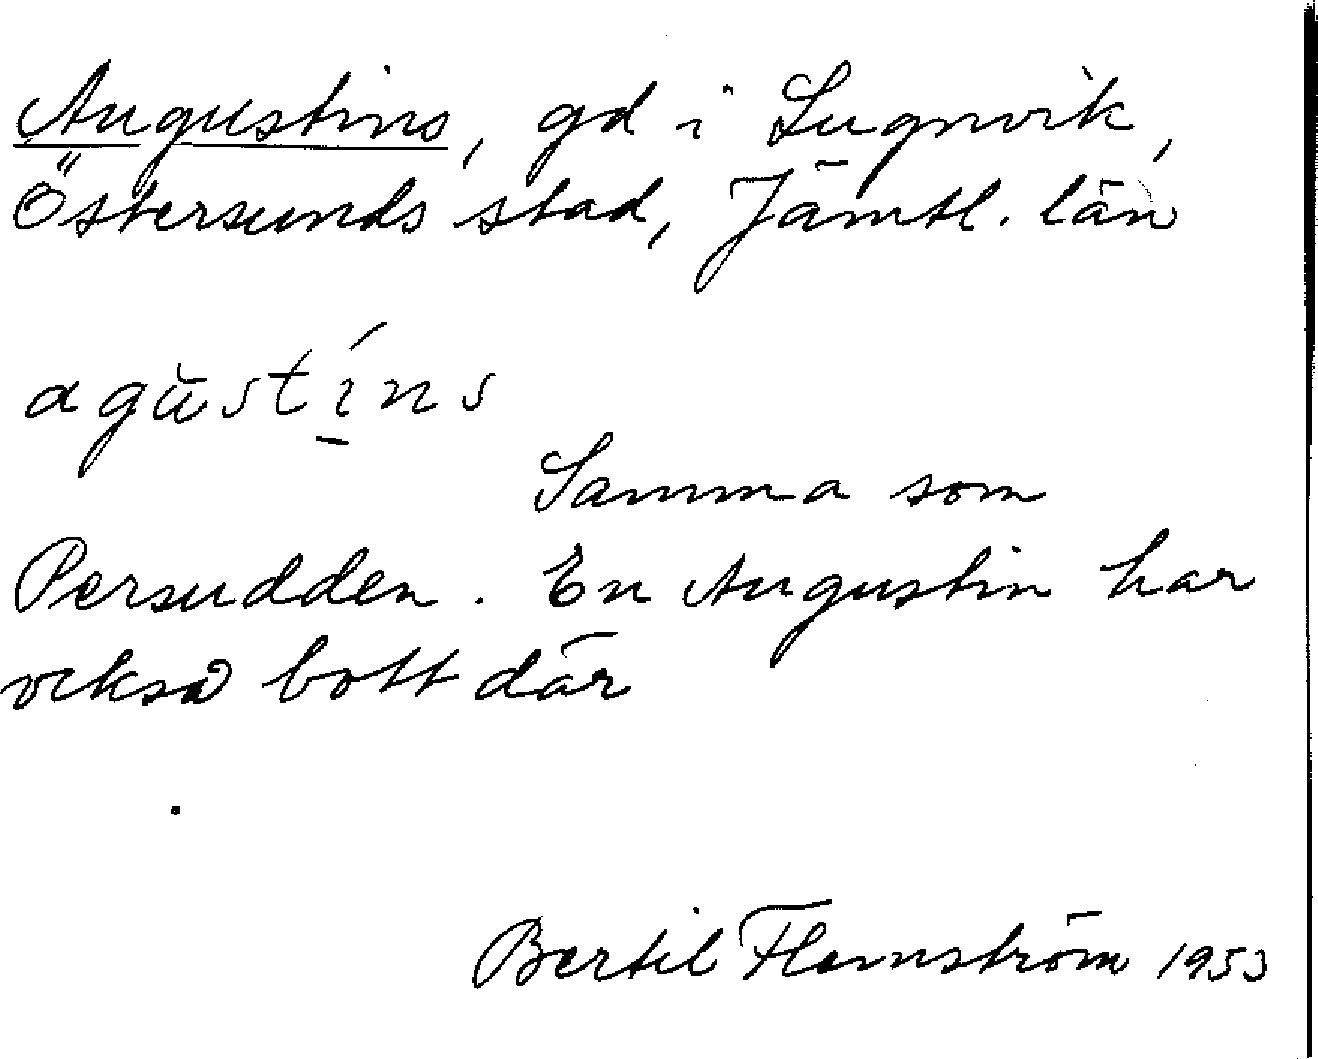 Augustins, gd i Lugnvik,
Östersunds stad, Jämtl. län
agustíns
Samma som
Persudden. En Augustin har
också bott där
Bertil Flemström 1953